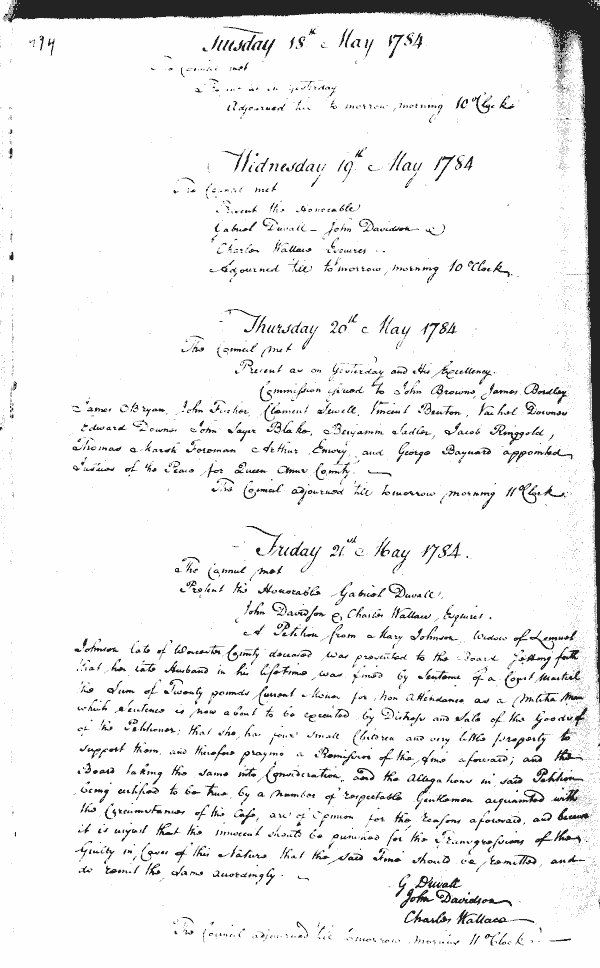 194
Tuesday 18th May 1784
The Council met
Present as on Yesterday
Adjourned till to morrow morning 10 oClock
Wednesday 19th May 1784
The Council met
Present the Honorable
Gabriel Duvall - John Davidson &
Charles Wallace Esquires
Adjourned till to morrow morning 10 oClock
Thursday 20th May 1784
The Council met
Present as on Yesterday and His Excellency
Commission issued to John Browne, James Bordley
James OBryan, John Fisher, Clement Sewell, Vincent Benton, Vachel Downes
Edward Downes John Sayer Blake, Benjamin Sadler, Jacob Ringgold,
Thomas Marsh Foreman Arthur Emory and George Baynard appointed
Justices of the Peace for Queen Anns County
The Council adjourned till tomorrow morning 11 oClock.
Friday 21st May 1784.
The Council met
Present the Honorable Gabriel Duvall.
John Davidson & Charles Wallace Esquires.
A Petition from Mary Johnson, Widow of Lemuel
Johnson late of Worcester County deceased was presented to the Board setting forth
that her late Husband in his lifetime was fined by Sentence of a Court Martial
the Sum of Twenty pounds Current Money for non Attendance as a Militia Man
which Sentence is now about to be executed by Distress and Sale of the Goods of
of the Petitioner; that she has four Small Children and very little property to
support them, and therefore praying a Remission of the fine aforesaid; and the
Board taking the same into Consideration, and the Allegations in said Petition
being certified to be true by a number of respectable Gentlemen acquainted with
the Circumstances of the Case, are of Opinion for the reasons aforesaid, and because
it is unjust that the innocent should be punished for the Transgressions of the
Guilty in Cases of this Nature that the said Fine should be remitted, and
do remit the same accordingly.
G Duvall
John Davidson
Charles Wallace
The Council adjourned till tomorrow morning 11 oClock